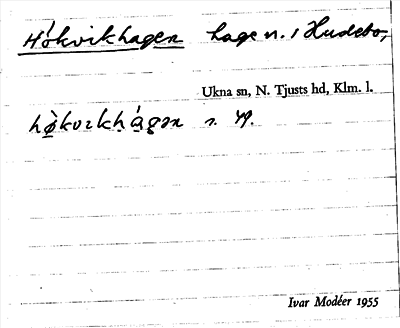 Hökvikhagen hage n. i Hudebo,
Ukna sn, N. Tjusts hd, Klm. l.
hø̀kvɪkhágən
Ivar Modéer 1955